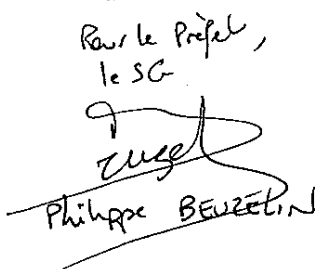 Pour le Préfet,
le SG
Philippe BEUZELIN